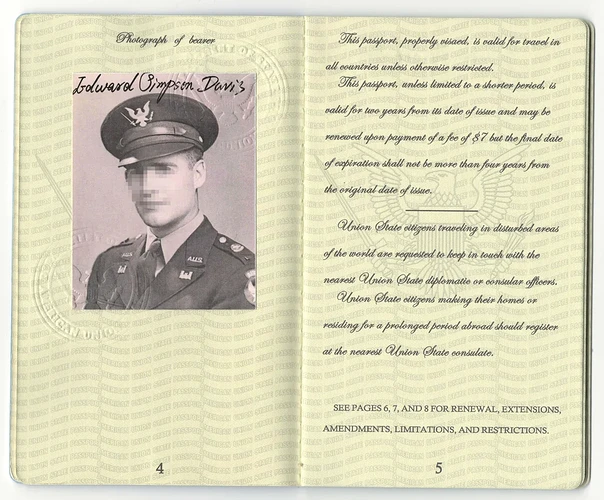 Photograph of bearer
Edward Simpson Davis
A.U.S.
4
This passport, properly visaed, is valid for travel in
all countries unless otherwise restricted.
This passport, unless limited to a shorter period, is
valid for two years from its date of issue and may be
renewed upon payment of a fee of $7 but the final date
of expiration shall not be more than four years from
the original date of issue.
Union State citizens traveling in disturbed areas
of the world are requested to keep in touch with the
nearest Union State diplomatic or consular officers.
Union State citizens making their homes or
residing for a prolonged period abroad should register
at the nearest Union State consulate.
SEE PAGES 6, 7, AND 8 FOR RENEWAL, EXTENSIONS,
AMENDMENTS, LIMITATIONS, AND RESTRICTIONS.
5